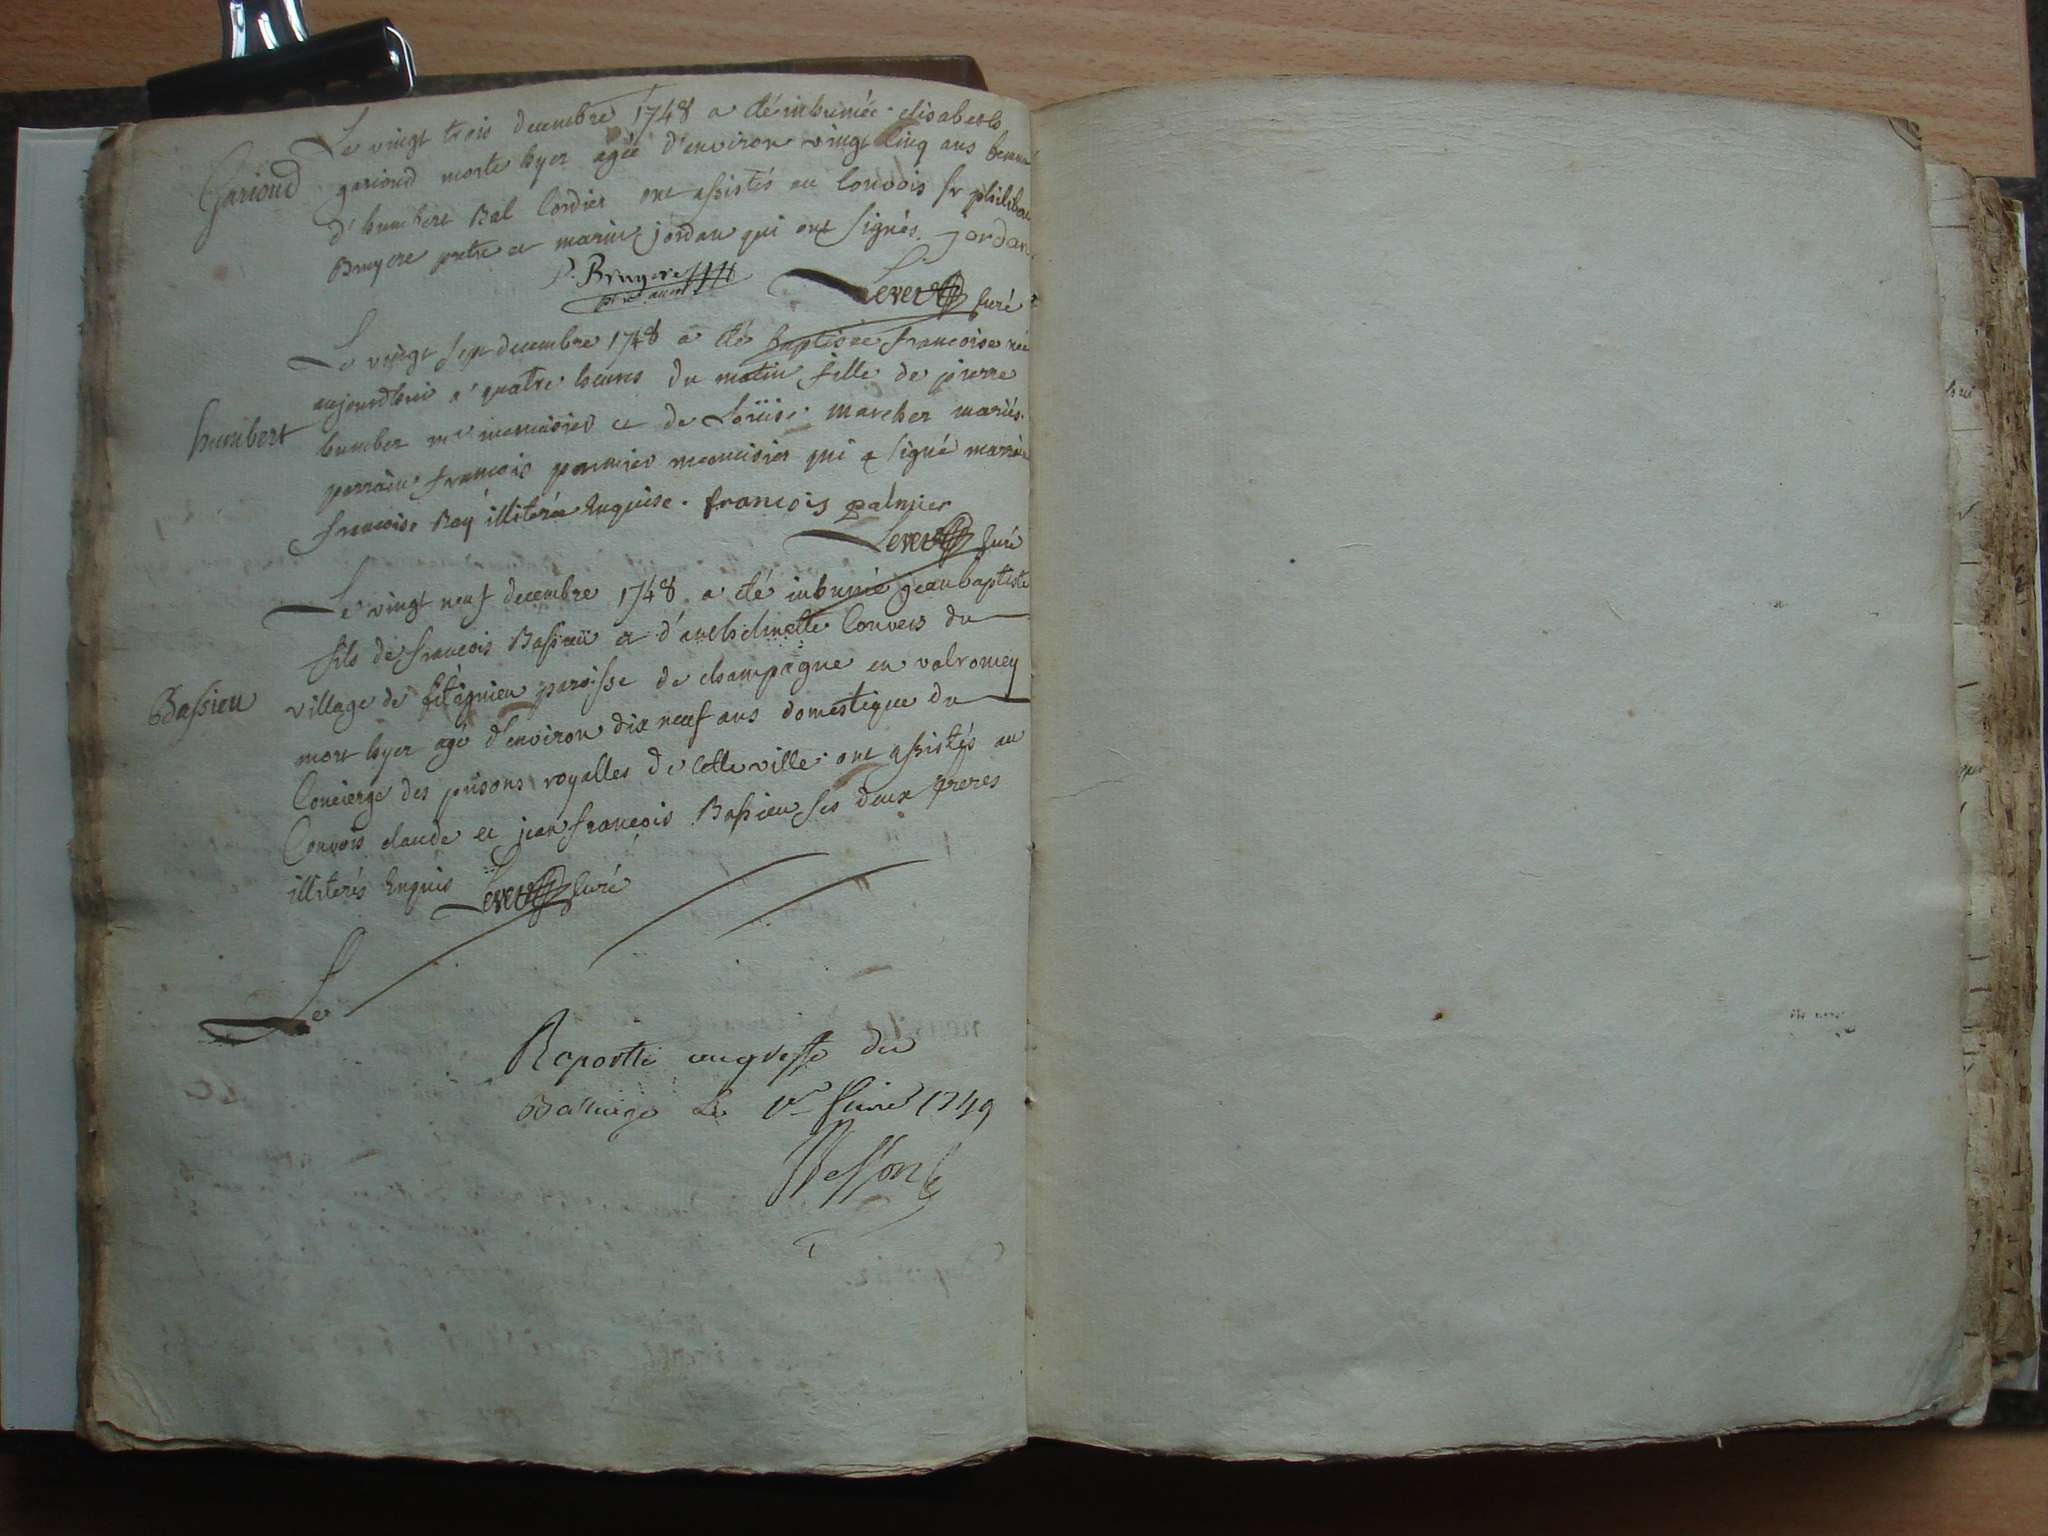 Le vingt trois decembre 1748 a été inhumée elisabeth
Gariond
gariond morte hyer agée d'environ vingt cinq ans femme
d'humbert Bal Cordier ont assistés au Convois sr philibert
Bruyere pretre et marin jordan qui ont signés. Jordan
P. Bruyere
Levet Curé
Le vingt sept decembre 1748 a été baptisée francoise née
aujourdhui a quatre heures du matin fille de pierre
humbert
humber me menuisier et de Loüise marcher mariés.
parrain francois parmier menuisier qui a signé marraine
francoise Rey illiterée Enquise. francois palmier
Levet Curé
Le vingt neuf decembre 1748 a été inhumé jean baptiste
fils de francois Bassieu et d'anthelmette Convers du
Bassieu
village de fitignieu paroisse de champagne en valromey
mort hyer agé d'environ dix neuf ans domestique du
Concierge des prisons royalles de Cette ville ont assistés au
Convois claude et jean francois Bassieu ses deux freres
illiterés Enquis Levet Curé
Le
Raportté au greffe du
Balliage Le 1er 1749